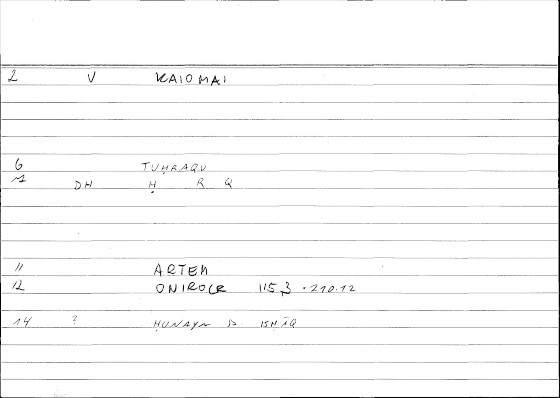 2 V KAIOMAI
6 TUḤRAQU
DH Ḥ R Q
11 ARTEM
12 ONIROCR 115,3 · 210.12
14 ? ḤUNAYN B ISḤĀQ